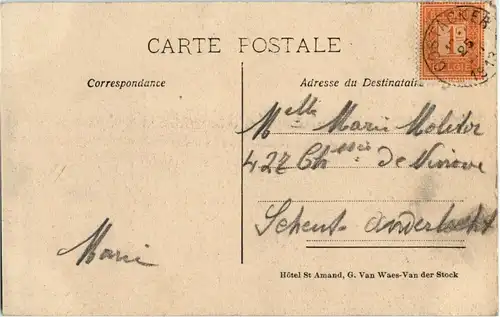 CARTE POSTALE
Correspondance
Adresse du Destinataire
OOSTACKER
1913
1
BELGIE
Melle Marie Molitor
427 Chssée de Ninove
Scheut-Anderlecht
Marie
Hôtel St Amand, G. Van Waes-Van der Stock